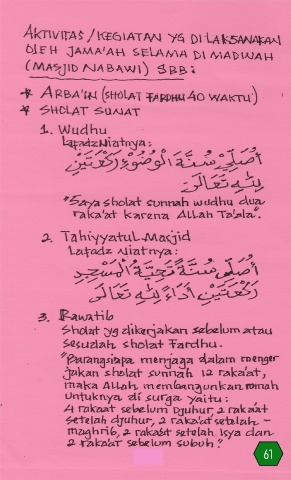 AKTIVITAS/KEGIATAN YG DILAKSANAKAN
OLEH JAMA'AH SELAMA DI MADINAH
(MASJID NABAWI) SBB:
* ARBA'IN (SHOLAT FARDHU 40 WAKTU)
* SHOLAT SUNAT
1. Wudhu
Lafadz Niatnya:
أُصَلِّيْ سُنَّةَ الْوُضُوْءِ رَكْعَتَيْنِ
لِلّٰهِ تَعَالَى
"Saya sholat sunnah wudhu dua
raka'at karena Allah Ta'ala".
2. Tahiyyatul Masjid
Lafadz Niatnya:
أُصَلِّيْ سُنَّةً تَحِيَّةَ الْمَسْجِدِ
رَكْعَتَيْنِ أَدَاءً لِلّٰهِ تَعَالَى
3. Rawatib
Sholat yg dikerjakan sebelum atau
sesudah sholat Fardhu.
"Barangsiapa menjaga dalam menger
jakan sholat sunnah 12 raka'at,
maka Allah membangunkan rumah
untuknya di surga yaitu:
4 rakaat sebelum Djuhur, 2 raka'at
setelah djuhur, 2 raka'at setelah -
maghrib, 2 raka'at setelah Isya dan
2 raka'at sebelum subuh."
61